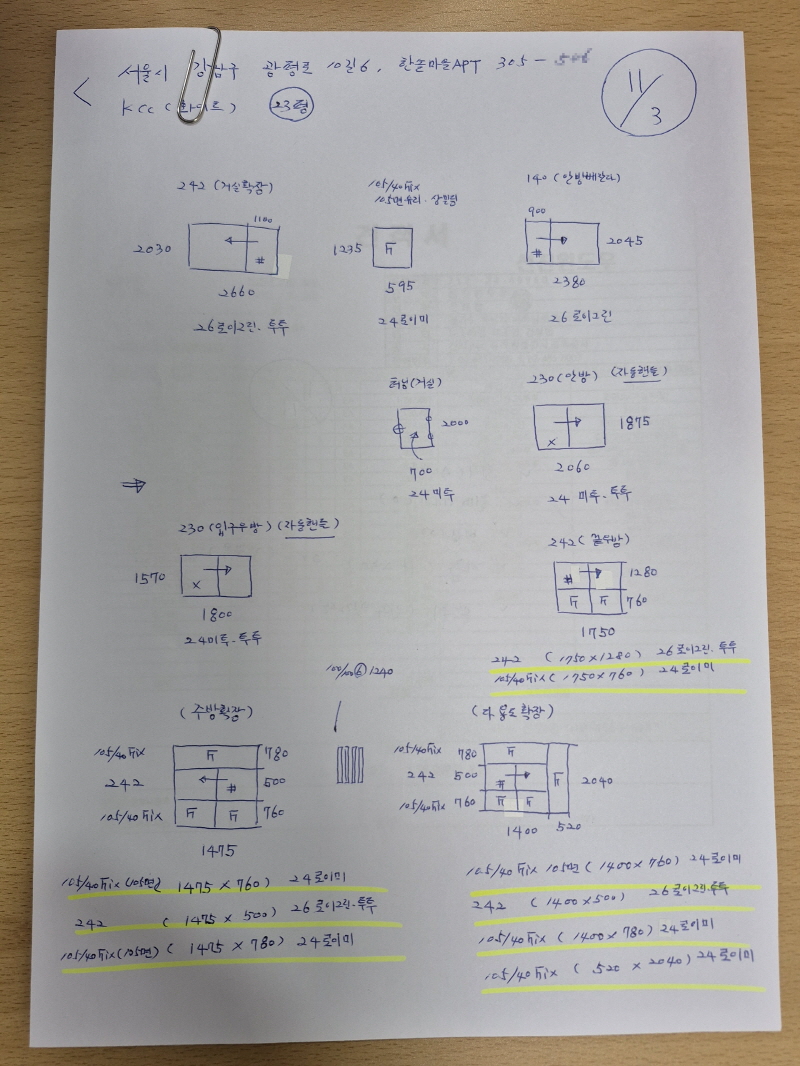 서울시 강남구 광평로 10길6, 한솔마을APT 305 -
KCC (화이트) 23평
11/3
242 (거실확장)
1100
2030
#
2660
26로이그린. 투투
105/40 Fix
105면유리.
1235
F
595
24로이미
140 (안방베란다)
900
2045
#
2380
26로이그린
터닝(거실)
2000
700
24미투
230(안방) (자동핸들)
1875
x
2060
24 미투. 투투
230(입구우방) (자동핸들)
1570
x
1800
24미투. 투투
242( )
1280
# F F
760
1750
242 (1750 x 1280) 26로이그린. 투투
105/40 Fix (1750 x 760) 24로이미
100/100 ⑥ 1240
(주방확장)
105/40 Fix F 780
242 # 500
105/40 Fix F F 760
1475
105/40 Fix (105면) 1475 x 760) 24로이미
242 ( 1475 x 500) 26로이그린. 투투
105/40 Fix (105면) ( 1475 x 780) 24로이미
(다용도확장)
105/40 Fix 780 F
242 500 # F 2040
105/40 Fix 760 F F
1400 520
105/40 Fix 105면 ( 1400 x 760) 24로이미
242 ( 1400 x 500) 26로이그린. 투투
105/40 Fix ( 1400 x 780) 24로이미
105/40 Fix ( 520 x 2040) 24로이미